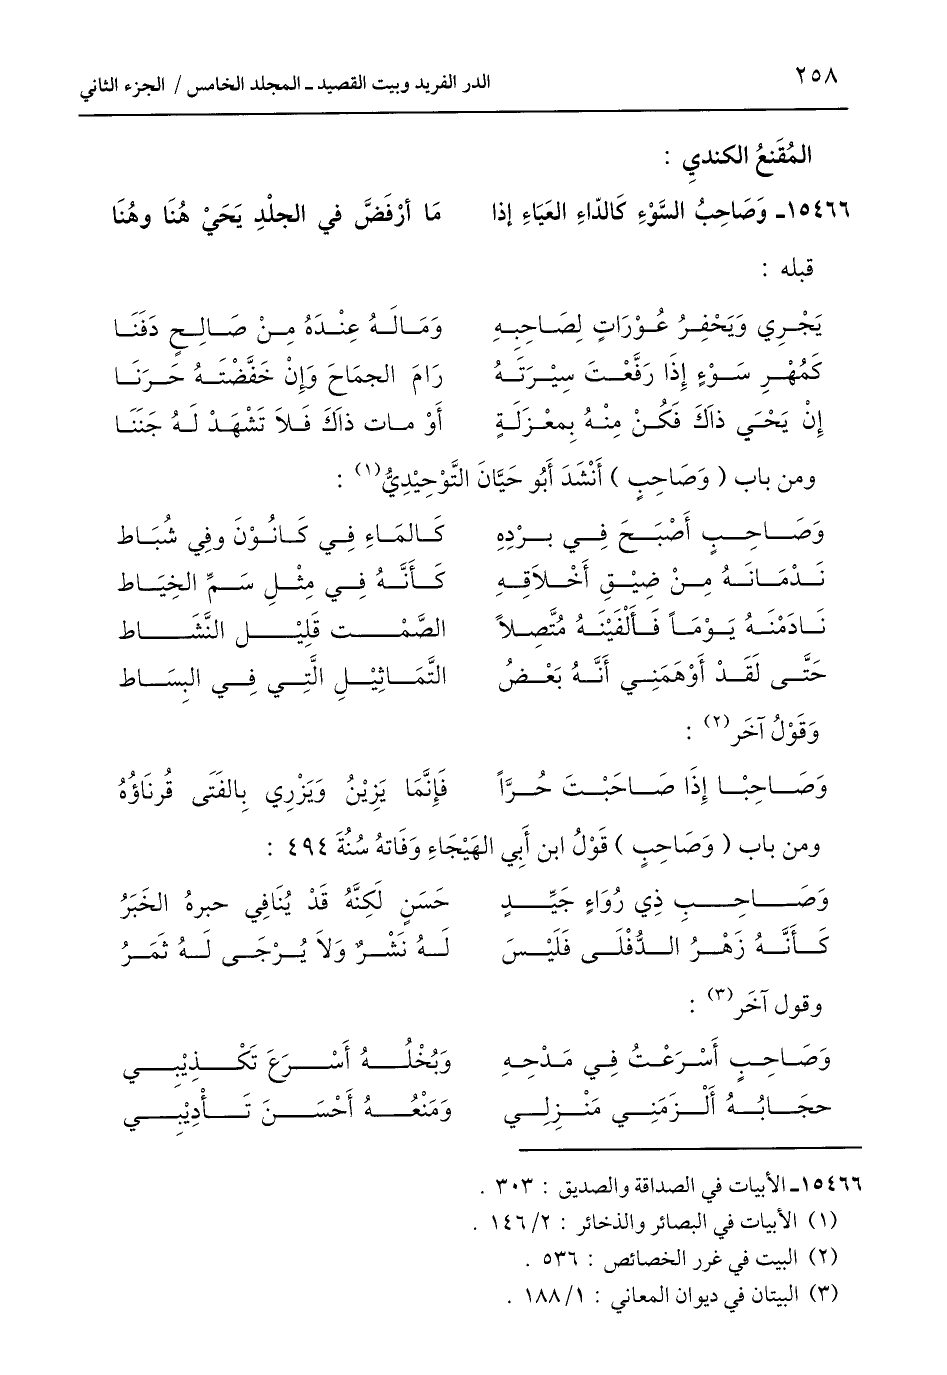 ٢٥٨ الدر الفريد وبيت القصيد ـ المجلد الخامس / الجزء الثاني
المُقَنعُ الكندي :
١٥٤٦٦ـ وَصَاحِبُ السَّوْءِ كَالدَّاءِ العَيَاءِ إذا مَا أرْفَضَّ في الجلْدِ يَحَيْ هُنَا وهُنَا
قبله :
يَجْرِي وَيَحْفِرُ عُوْرَاتٍ لِصَاحِبِهِ وَمَالَهُ عِنْدَهُ مِنْ صَالِحٍ دَفَنَا
كَمُهْرِ سَوْءٍ إذَا رَفَّعْتَ سِيْرَتَهُ رَامَ الجمَاحَ وَإنْ خَفَّضْتَهُ حَرَنَا
إنْ يَحْيَى ذَاكَ فَكُنْ مِنْهُ بِمعْزَلَةٍ أوْ مات ذَاكَ فَلاَ تَشْهَدْ لَهُ جَنَنَا
ومن باب ( وَصَاحِبٍ ) أَنْشَدَ أبُو حَيَّانَ التَّوْحِيْدِيُّ(١) :
وَصَاحِبٍ أصْبَحَ فِي بردِهِ كَالمَاءِ فِي كَانُوْنَ وفِي شُبَاط
نَدْمَانَهُ مِنْ ضِيْقِ أخْلاَقِهِ كَأنَّهُ فِي مِثْلِ سَمِّ الخِيَاط
نَادَمْتهُ يَوْمَاً فَألْفَيْتهُ مُتَّصِلاً الصَّمْتِ قَلِيْلِ النَّشَاط
حَتَّى لَقَدْ أوْهَمَنِي أنَّهُ بَعْضُ التَّمَاثِيْلِ الَّتِي فِي البسَاط
وَقَوْلُ آخَر(٢) :
وَصَاحِبْا إذَا صَاحَبْتَ حُرَّاً فَإنَّمَا يَزِيْنُ وَيَزْرِي بِالفَتَى قُرنَاؤُهُ
ومن باب ( وَصَاحِبٍ ) قَوْلُ ابن أَبِي الهَيْجَاءِ وَفَاتهُ سُنَةَ ٤٩٤ :
وَصَاحِبٍ ذِي رُوَاءٍ جَيِّدٍ حَسَنٍ لَكِنَّهُ قَدْ يُنَافِي حبرهُ الخَبَرُ
كَأنَّهُ زَهْرُ الدُّفْلَى فَلَيْسَ لَهُ نَشْرٌ وَلاَ يُرْجَى لَهُ ثمَرُ
وقول آخَر(٣) :
وَصَاحِبٍ أسْرَعْتُ فِي مَدْحِهِ وَبُخْلُهُ أسْرَعَ تَكْذِيْبِي
حجَابُهُ ألْزَمَنِي مَنْزِلِي وَمَنْعُهُ أحْسَنَ تَأدِيْبِي
١٥٤٦٦ـ الأبيات في الصداقة والصديق : ٣٠٣ .
(١) الأبيات في البصائر والذخائر : ٢/ ١٤٦ .
(٢) البيت في غرر الخصائص : ٥٣٦ .
(٣) البيتان في ديوان المعاني : ١/ ١٨٨ .